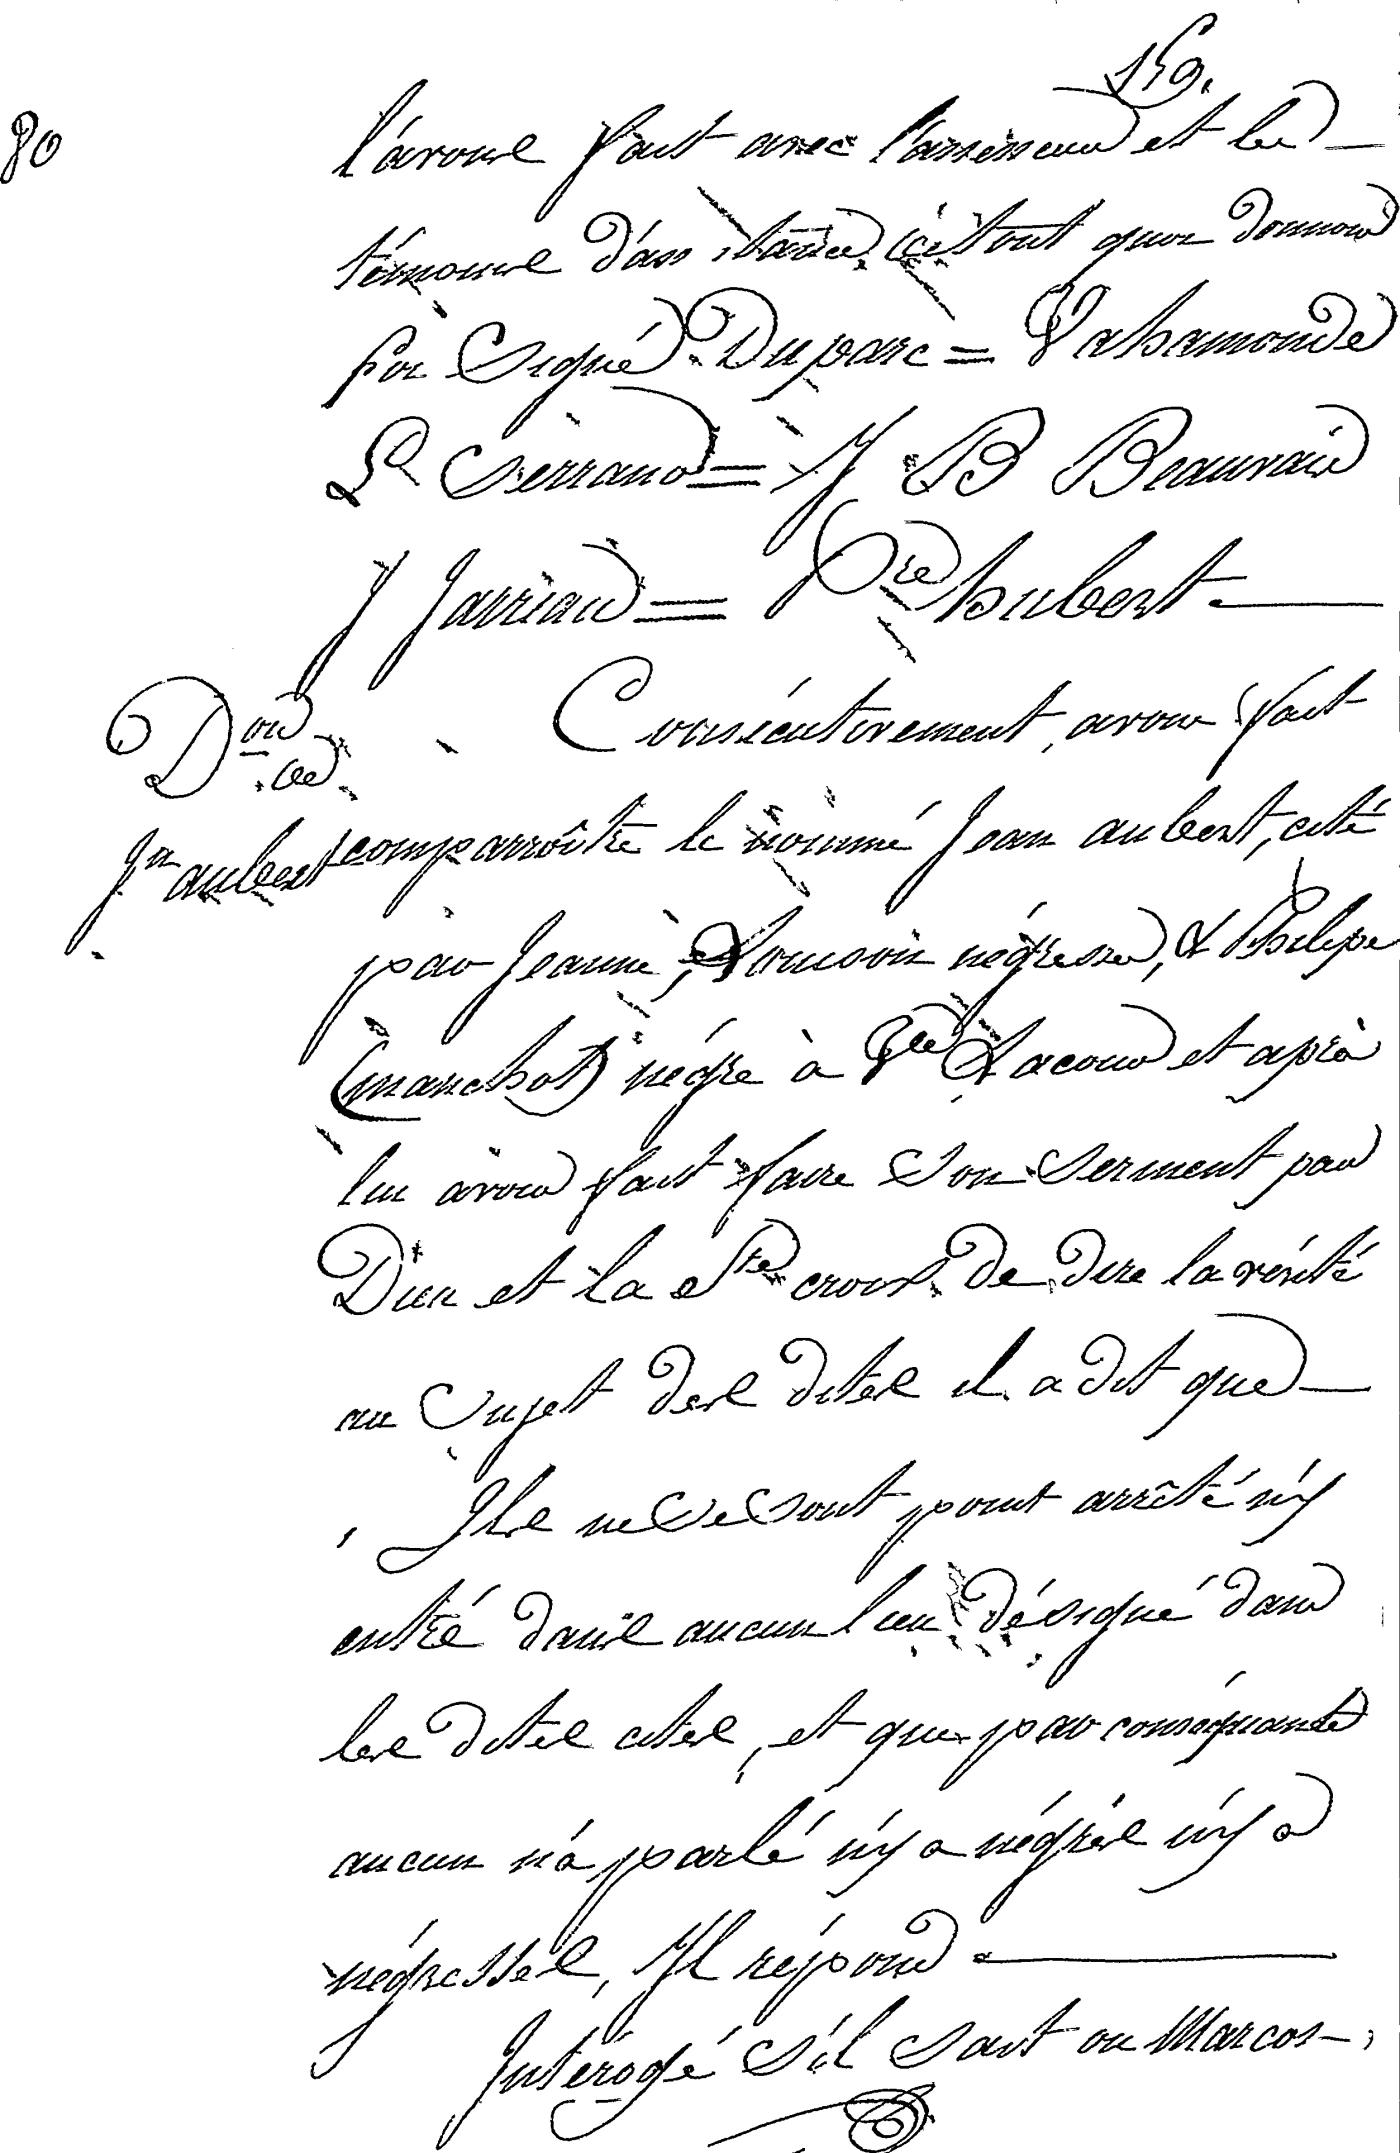 159.
80
l'avons fait avec l'assesseur et les
témoins d'assistance, ce tout quoi donnons
foi Signé Duparc = Vahamonde
Ls Serrano = J B Beauvais
J Jarriau = Pre hubert
Don de
Consécutivement, avons fait
Jn aubert
comparroître le nommé Jean aubert, cité
par Jeanne, & Fonson négresses, & Philipe
(manchot) négre à Vve Lacour et après
lui avoir fait faire Son Serment par
Dieu et la Ste croix de dire la vérité
au Sujet des dites il a dit que
Ils ne Se Sont point arrêté n'y
entré dans aucun lieu désigné dans
les dites cites, et que par conséquante
aucun n'a parlé n'y a négres n'y a
négresses, Il répond
Intérogé S'il Sait ou Marcos